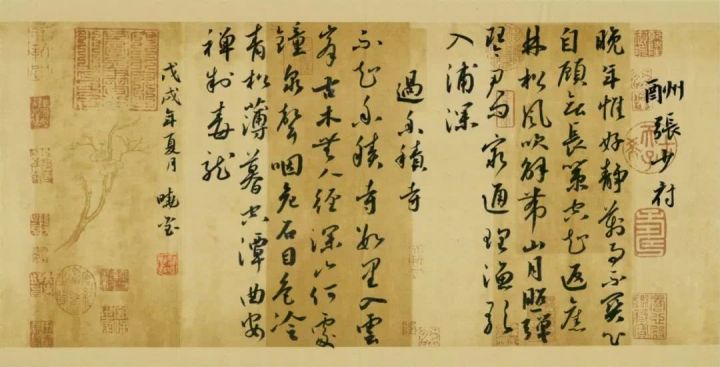 酬張少府
晚年惟好靜萬事不關心
自顧無長策空知返舊
林松風吹解帶山月照彈
琴君問窮通理漁歌
入浦深
過香積寺
不知香積寺數里入雲
峯古木無人徑深山何處
鐘泉聲咽危石日色冷
青松薄暮空潭曲安
禪制毒龍
戊戌年夏月 曉